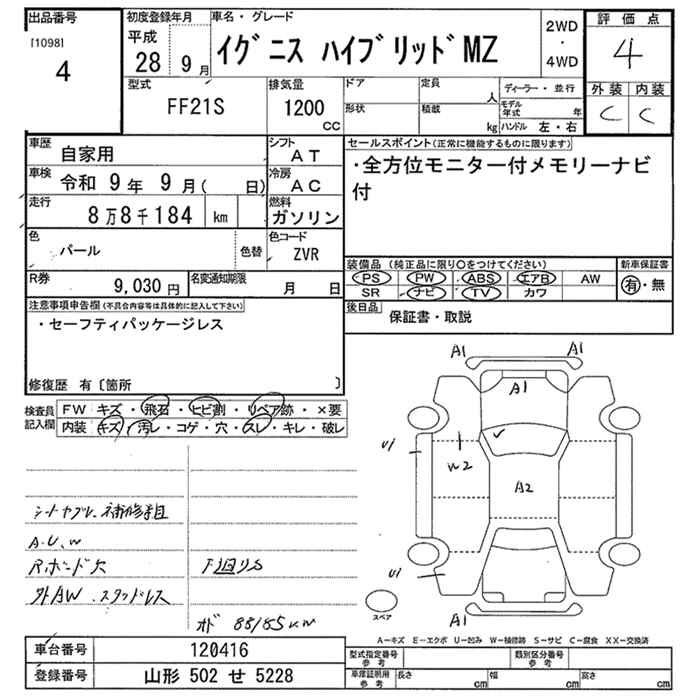 出品番号
[1098]
4
初度登録年月
平成
28 9月
車名・グレード
イグニス ハイブリッドMZ
2WD
・
4WD
評価点
4
外装 内装
C C
型式
FF21S
排気量
1200
CC
ドア
形状
定員
人
積載
kg
ディーラー・並行
モデル年式 年
ハンドル 左・右
車歴
自家用
シフト
AT
車検
令和 9年 9月( 日)
冷房
AC
走行
8万8千184 km
燃料
ガソリン
色
パール
色替
色コード
ZVR
R券
9,030円
名変通知期限
月 日
セールスポイント(正常に機能するものに限ります)
・全方位モニター付メモリーナビ
付
装備品 (純正品に限り○をつけてください)
PS PW ABS エアB AW
SR ナビ TV カワ
新車保証書
有・無
後日品
保証書・取説
注意事項申告欄(不具合内容等は具体的に記入して下さい)
・セーフティパッケージレス
修復歴 有〔箇所 〕
検査員
記入欄
FW キズ・飛石・ヒビ割・リペア跡・×要
内装 キズ・汚レ・コゲ・穴・スレ・キレ・破レ
A.U.W
下廻りサ
外AW スタッドレス
A1 A1
A1
U1
W2
A2
U1
A1
スペア
A-キズ E-エクボ U-凹み W-補修跡 S-サビ C-腐食 XX-交換済
車台番号
120416
登録番号
山形 502 せ 5228
型式指定番号
参考
類別区分番号
参考
車庫証明用
参考
長さ cm 幅 cm 高さ cm